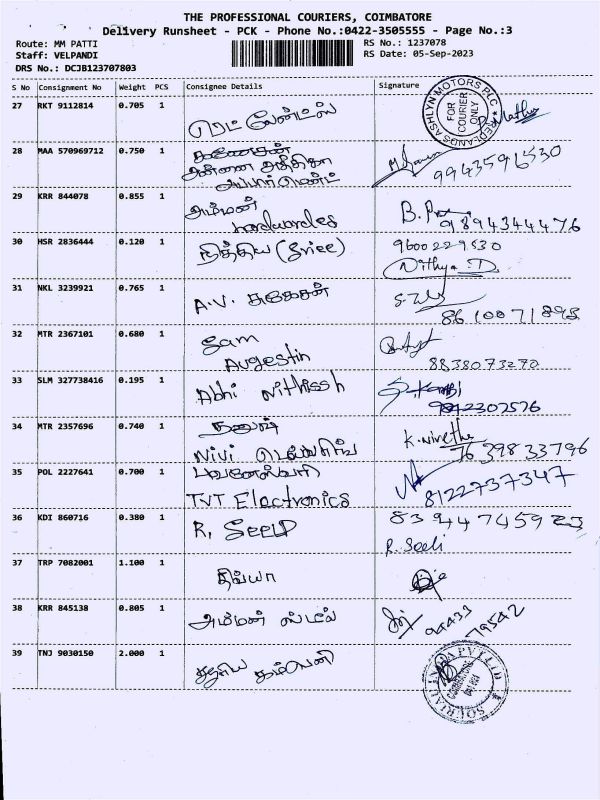 THE PROFESSIONAL COURIERS, COIMBATORE
Delivery Runsheet - PCK - Phone No.:0422-3505555 - Page No.:3
Route: MM PATTI
RS No.: 1237078
Staff: VELPANDI
RS Date: 05-Sep-2023
DRS No.: DCJB123707803
S No Consignment No Weight PCS Consignee Details Signature
27 RKT 9112814 0.705 1
ASHLYN MOTORS PLC REDLANDS
FOR COURIER ONLY
28 MAA 570969712 0.750 1 கணேசன்
அன்னை
அப்பார்மெண்ட்
9943596530
29 KRR 844078 0.855 1 அம்மன்
hardwardes
9894344476
30 HSR 2836444 0.120 1 நித்திய (Sriee) 9600229530
Nithya. D.
31 NKL 3239921 0.765 1 A.V. முருகேசன்
8610071895
32 MTR 2367101 0.680 1 Sam
Augestin
8838073270
33 SLM 327738416 0.195 1 Abhi Nithissh
9842302576
34 MTR 2357696 0.740 1
Nivi டெய்லரிங் K. Nivetha
7639833796
35 POL 2227641 0.700 1 புவனேஸ்வரி
TVT Electronics 8122737347
36 KDI 860716 0.380 1 R, Seeli 83944745923
R. Seeli
37 TRP 7082001 1.100 1 திவ்யா
38 KRR 845138 0.805 1 அம்மன் ஸ்டீல் 94433 79542
39 TNJ 9030150 2.000 1 சூரிய கம்பெனி